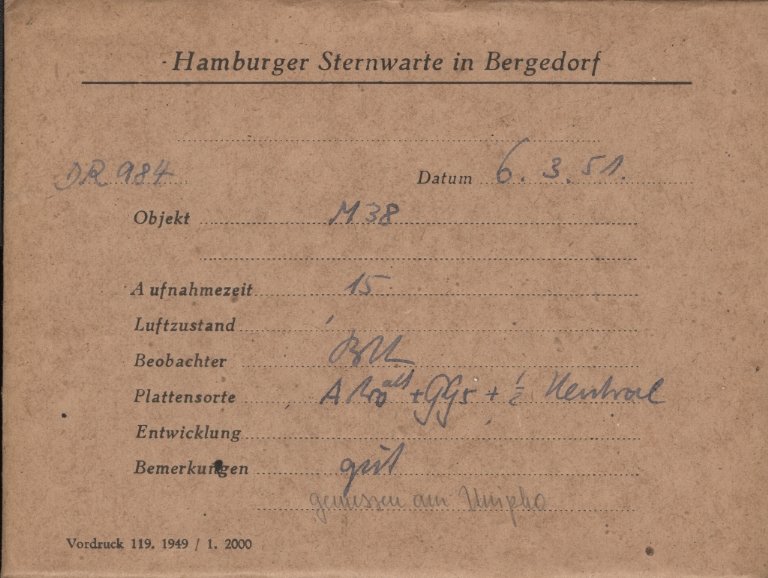 Hamburger Sternwarte in Bergedorf
DR 984 Datum 6. 3. 51.
Objekt M 38
Aufnahmezeit 15
Luftzustand
Beobachter
Plattensorte alt + GG5 + ½ Neutral
Entwicklung
Bemerkungen gut
gemessen am Unipho
Vordruck 119. 1949 / 1. 2000